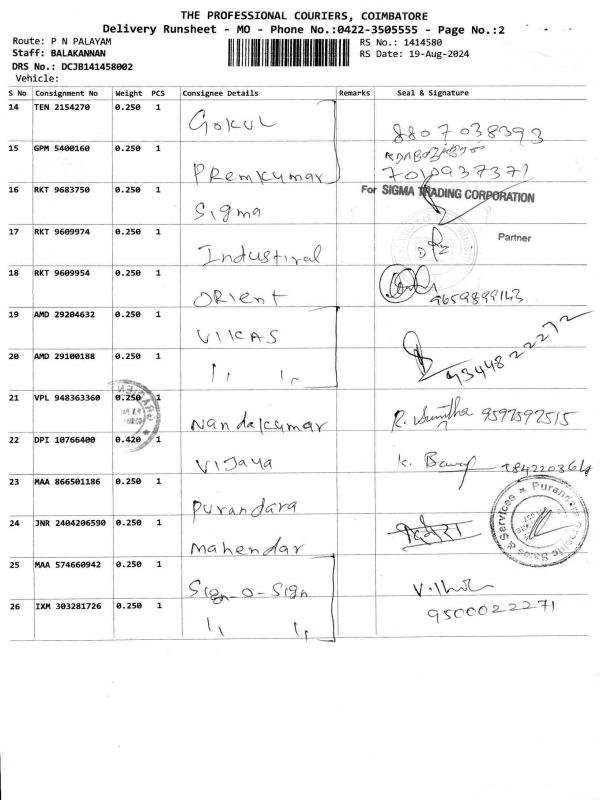 THE PROFESSIONAL COURIERS, COIMBATORE
Delivery Runsheet - MO - Phone No.:0422-3505555 - Page No.:2
Route: P N PALAYAM
RS No.: 1414580
Staff: BALAKANNAN
RS Date: 19-Aug-2024
DRS No.: DCJB141458002
Vehicle:
S No Consignment No Weight PCS Consignee Details Remarks Seal & Signature
14 TEN 2154270 0.250 1 Gokul 8807038393
15 GPM 5400160 0.250 1 Premkumar 7010937371
16 RKT 9683750 0.250 1 Sigma For SIGMA TRADING CORPORATION
17 RKT 9609974 0.250 1 Industrial Partner
18 RKT 9609954 0.250 1 Orient 9659899143
19 AMD 29204632 0.250 1 VIKAS
20 AMD 29100188 0.250 1 " " 9344822272
21 VPL 948363360 0.250 1 Nandakumar 9597597515
22 DPI 10766400 0.420 1 Vijaya
23 MAA 866501186 0.250 1 Purandara
24 JNR 2404206590 0.250 1 Mahendar
25 MAA 574660942 0.250 1 Sign-o-Sign
26 IXM 303281726 0.250 1 " " 9500022271